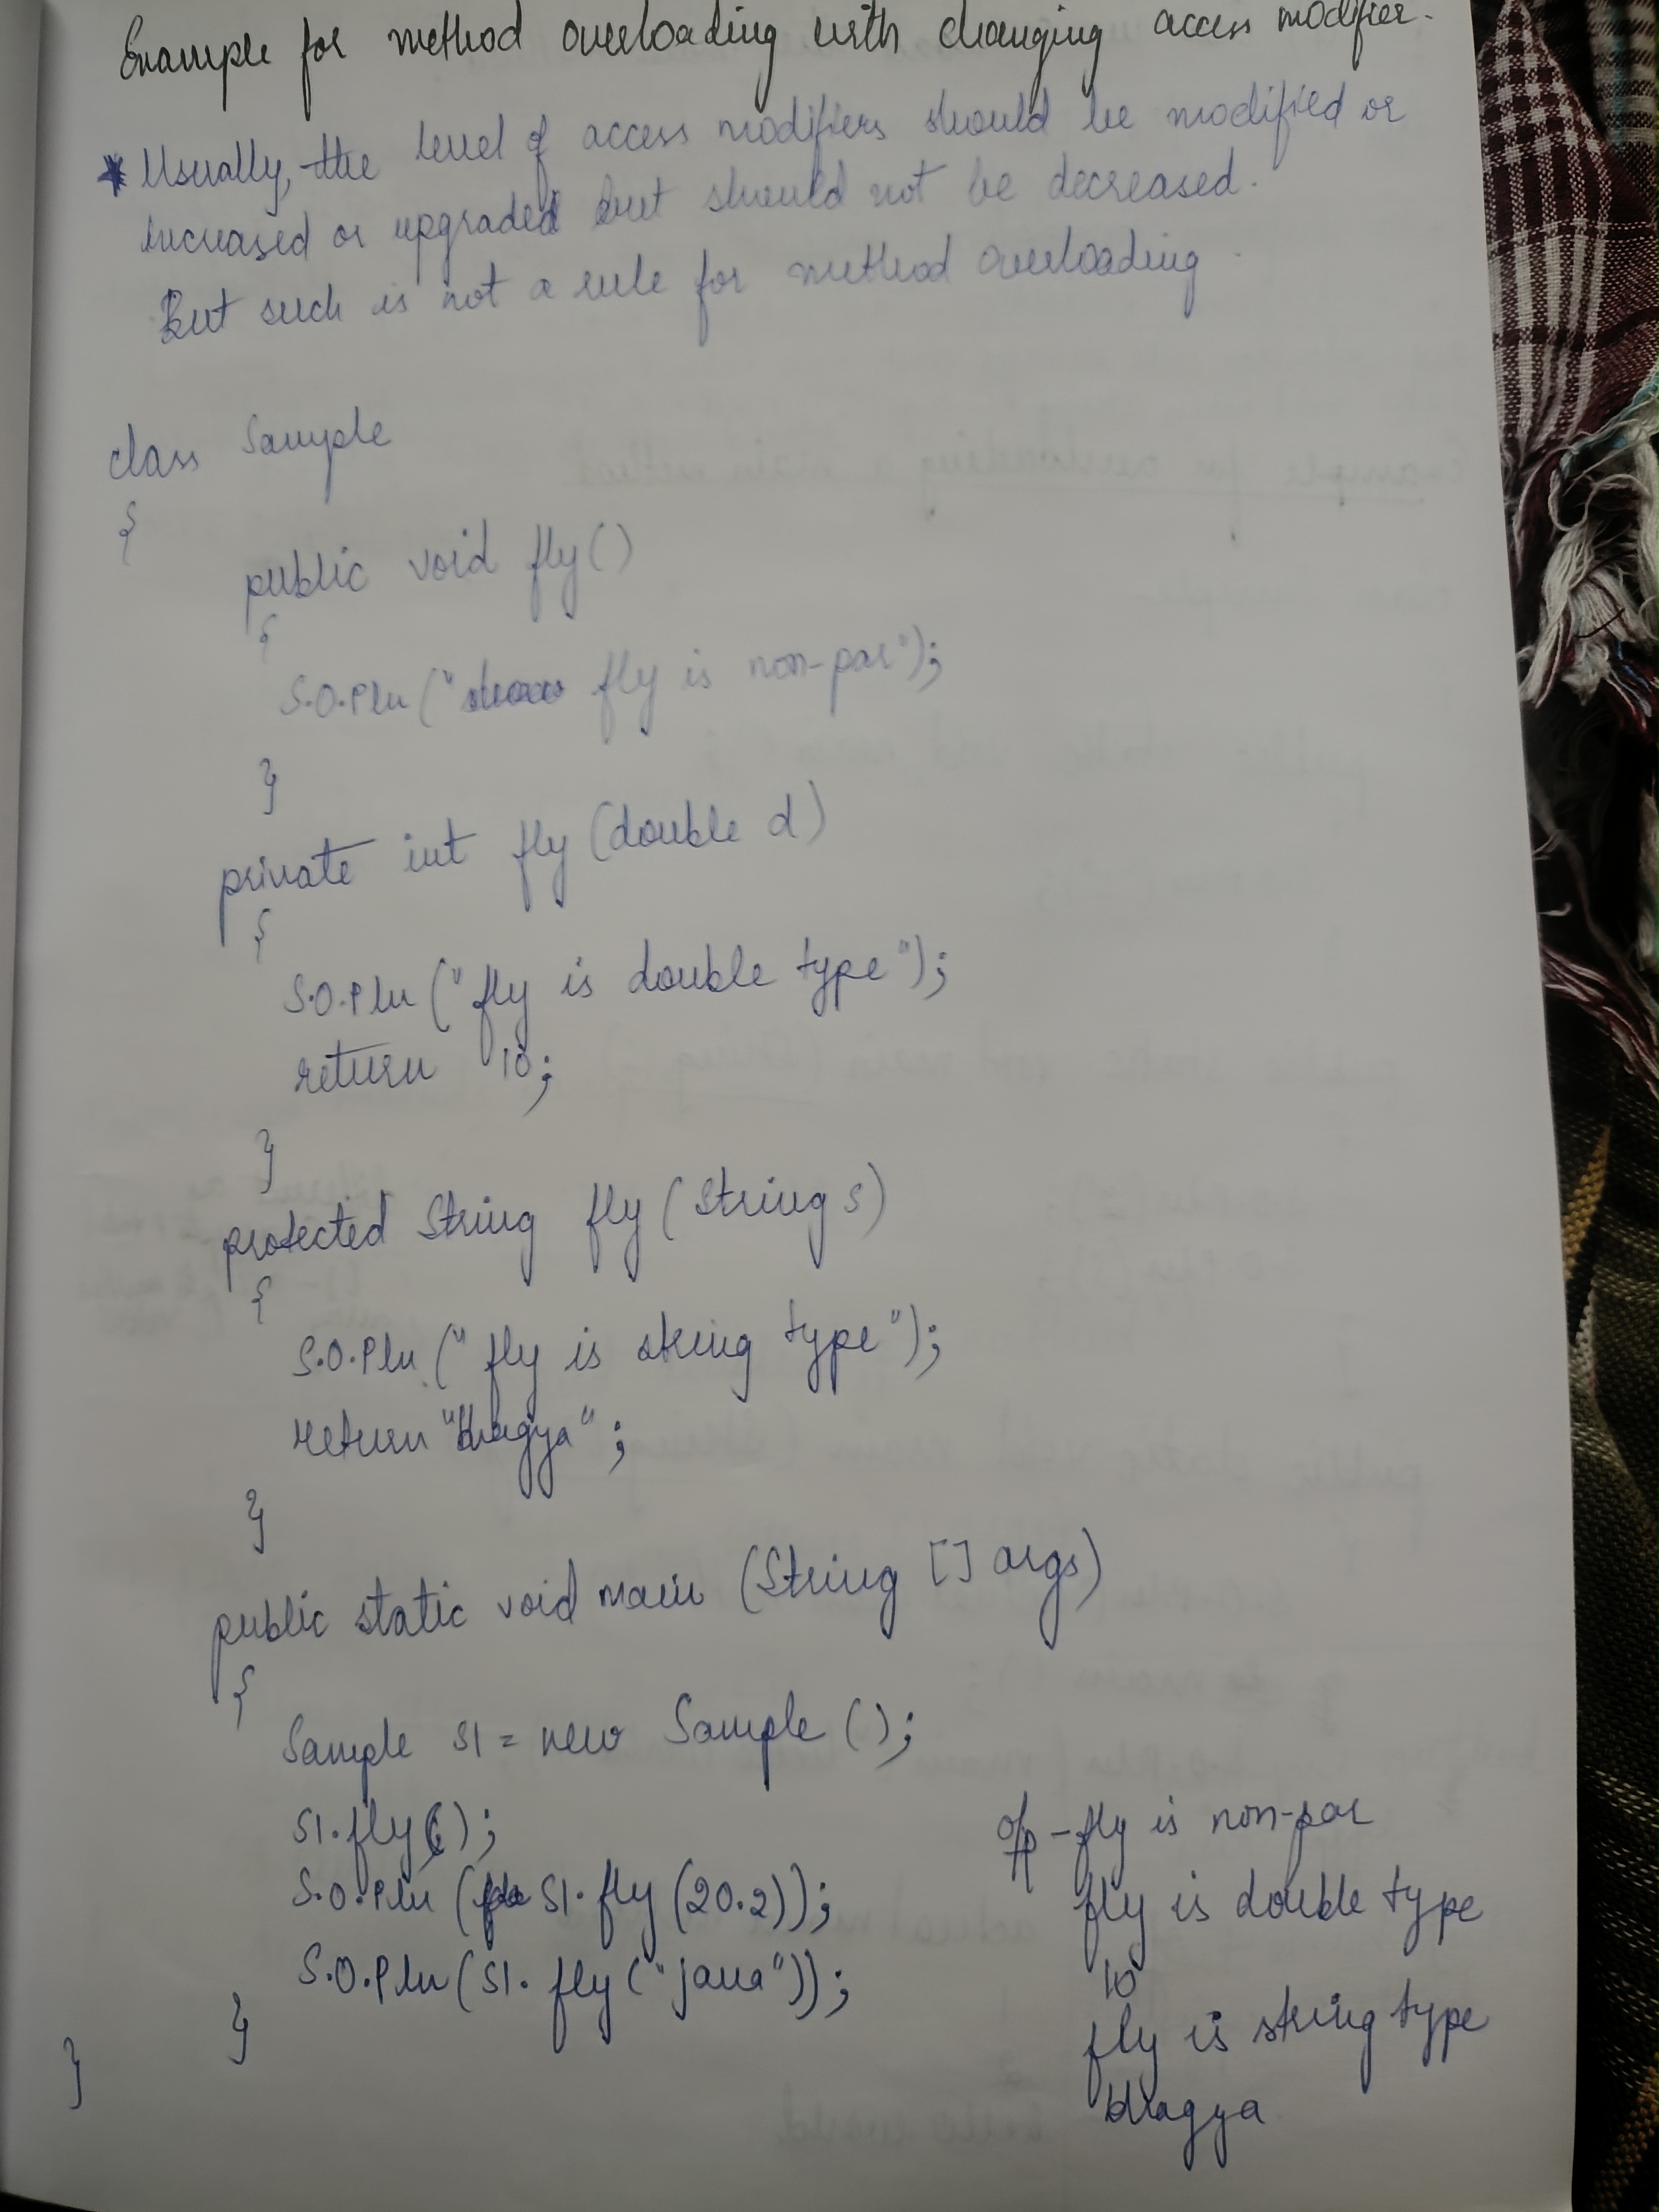 Example for method overloading with changing access modifier.
* Usually, the level of access modifiers should be modified or
increased or upgraded but should not be decreased.
But such is not a rule for method overloading.
class Sample
{
public void fly()
{
S.O.Pln(" fly is non-par");
}
private int fly (double d)
{
S.O.Pln ("fly is double type");
return 10;
}
protected String fly (String s)
{
S.O.Pln (" fly is string type");
return "bhagya";
}
public static void main (String [] args)
{
Sample S1 = new Sample ();
S1.fly();
S.O.Pln (S1.fly (20.2));
S.O.Pln (S1. fly ("java"));
}
}
o/p - fly is non-par
fly is double type
10
fly is string type
bhagya